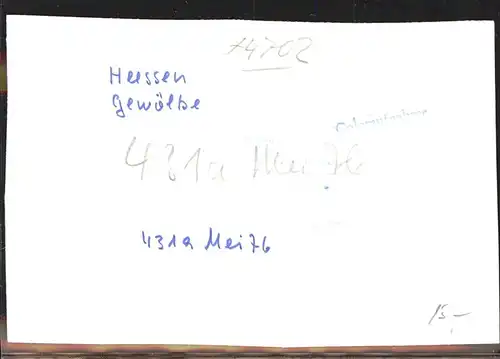 74702
Hessen
Gewölbe
431a Mei 76
431a Mei 76
15,-